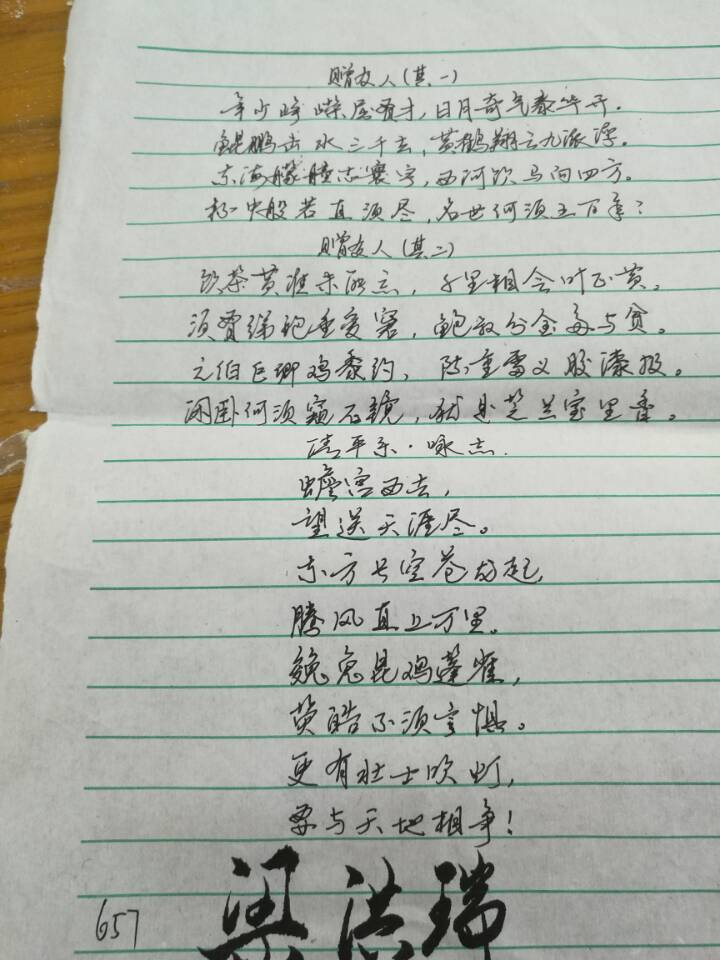 赠友人(其一)
年少峥嵘屈贾才,日月奇气春华开。
鲲鹏击水三千去,黄鹤翔云九派浮。
东海艨艟志寰宇,西河饮马问四方。
杯中般若直须尽,名世何须五百年?
赠友人(其二)
饮茶黄淮未能忘,千里相会叶正黄。
须贾绨袍重爱寒,鲍叔分金每与贫。
元伯巨卿鸡黍约,陈重雷义胶漆投。
闲卧何须窥石镜,就是芝兰室里香。
清平乐·咏志
蟾宫西去,
望送天涯尽。
东方长空苍龙起,
腾风直上万里。
魏兔昆鸡蓬雀,
黄皓不须言惧。
更有壮士吹虹,
要与天地相争!
657
梁洪瑞